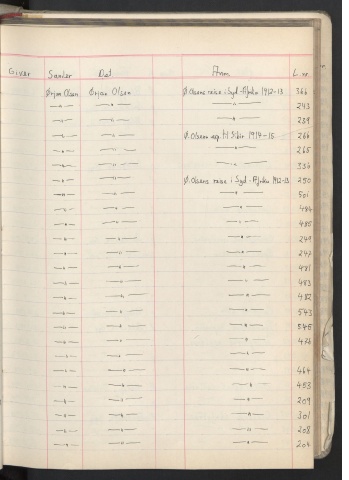 Giver Samler Det. Anm. L. nr.
Ørjan Olsen Ørjan Olsen Ø. Olsens reise i Syd-Afrika 1912-13 366
—"— —"— —"— 243
—"— —"— —"— 239
—"— —"— Ø. Olsens exp. til Sibir 1914-15 266
—"— —"— —"— 265
—"— —"— —"— 336
—"— —"— Ø. Olsens reise i Syd-Afrika 1912-13 250
—"— —"— —"— 501
—"— —"— —"— 484
—"— —"— —"— 485
—"— —"— —"— 249
—"— —"— —"— 247
—"— —"— —"— 481
—"— —"— —"— 483
—"— —"— —"— 482
—"— —"— —"— 543
—"— —"— —"— 545
—"— —"— —"— 476
—"— —"— —"—
—"— —"— —"— 464
—"— —"— —"— 463
—"— —"— —"— 209
—"— —"— —"— 301
—"— —"— —"— 208
—"— —"— —"— 204